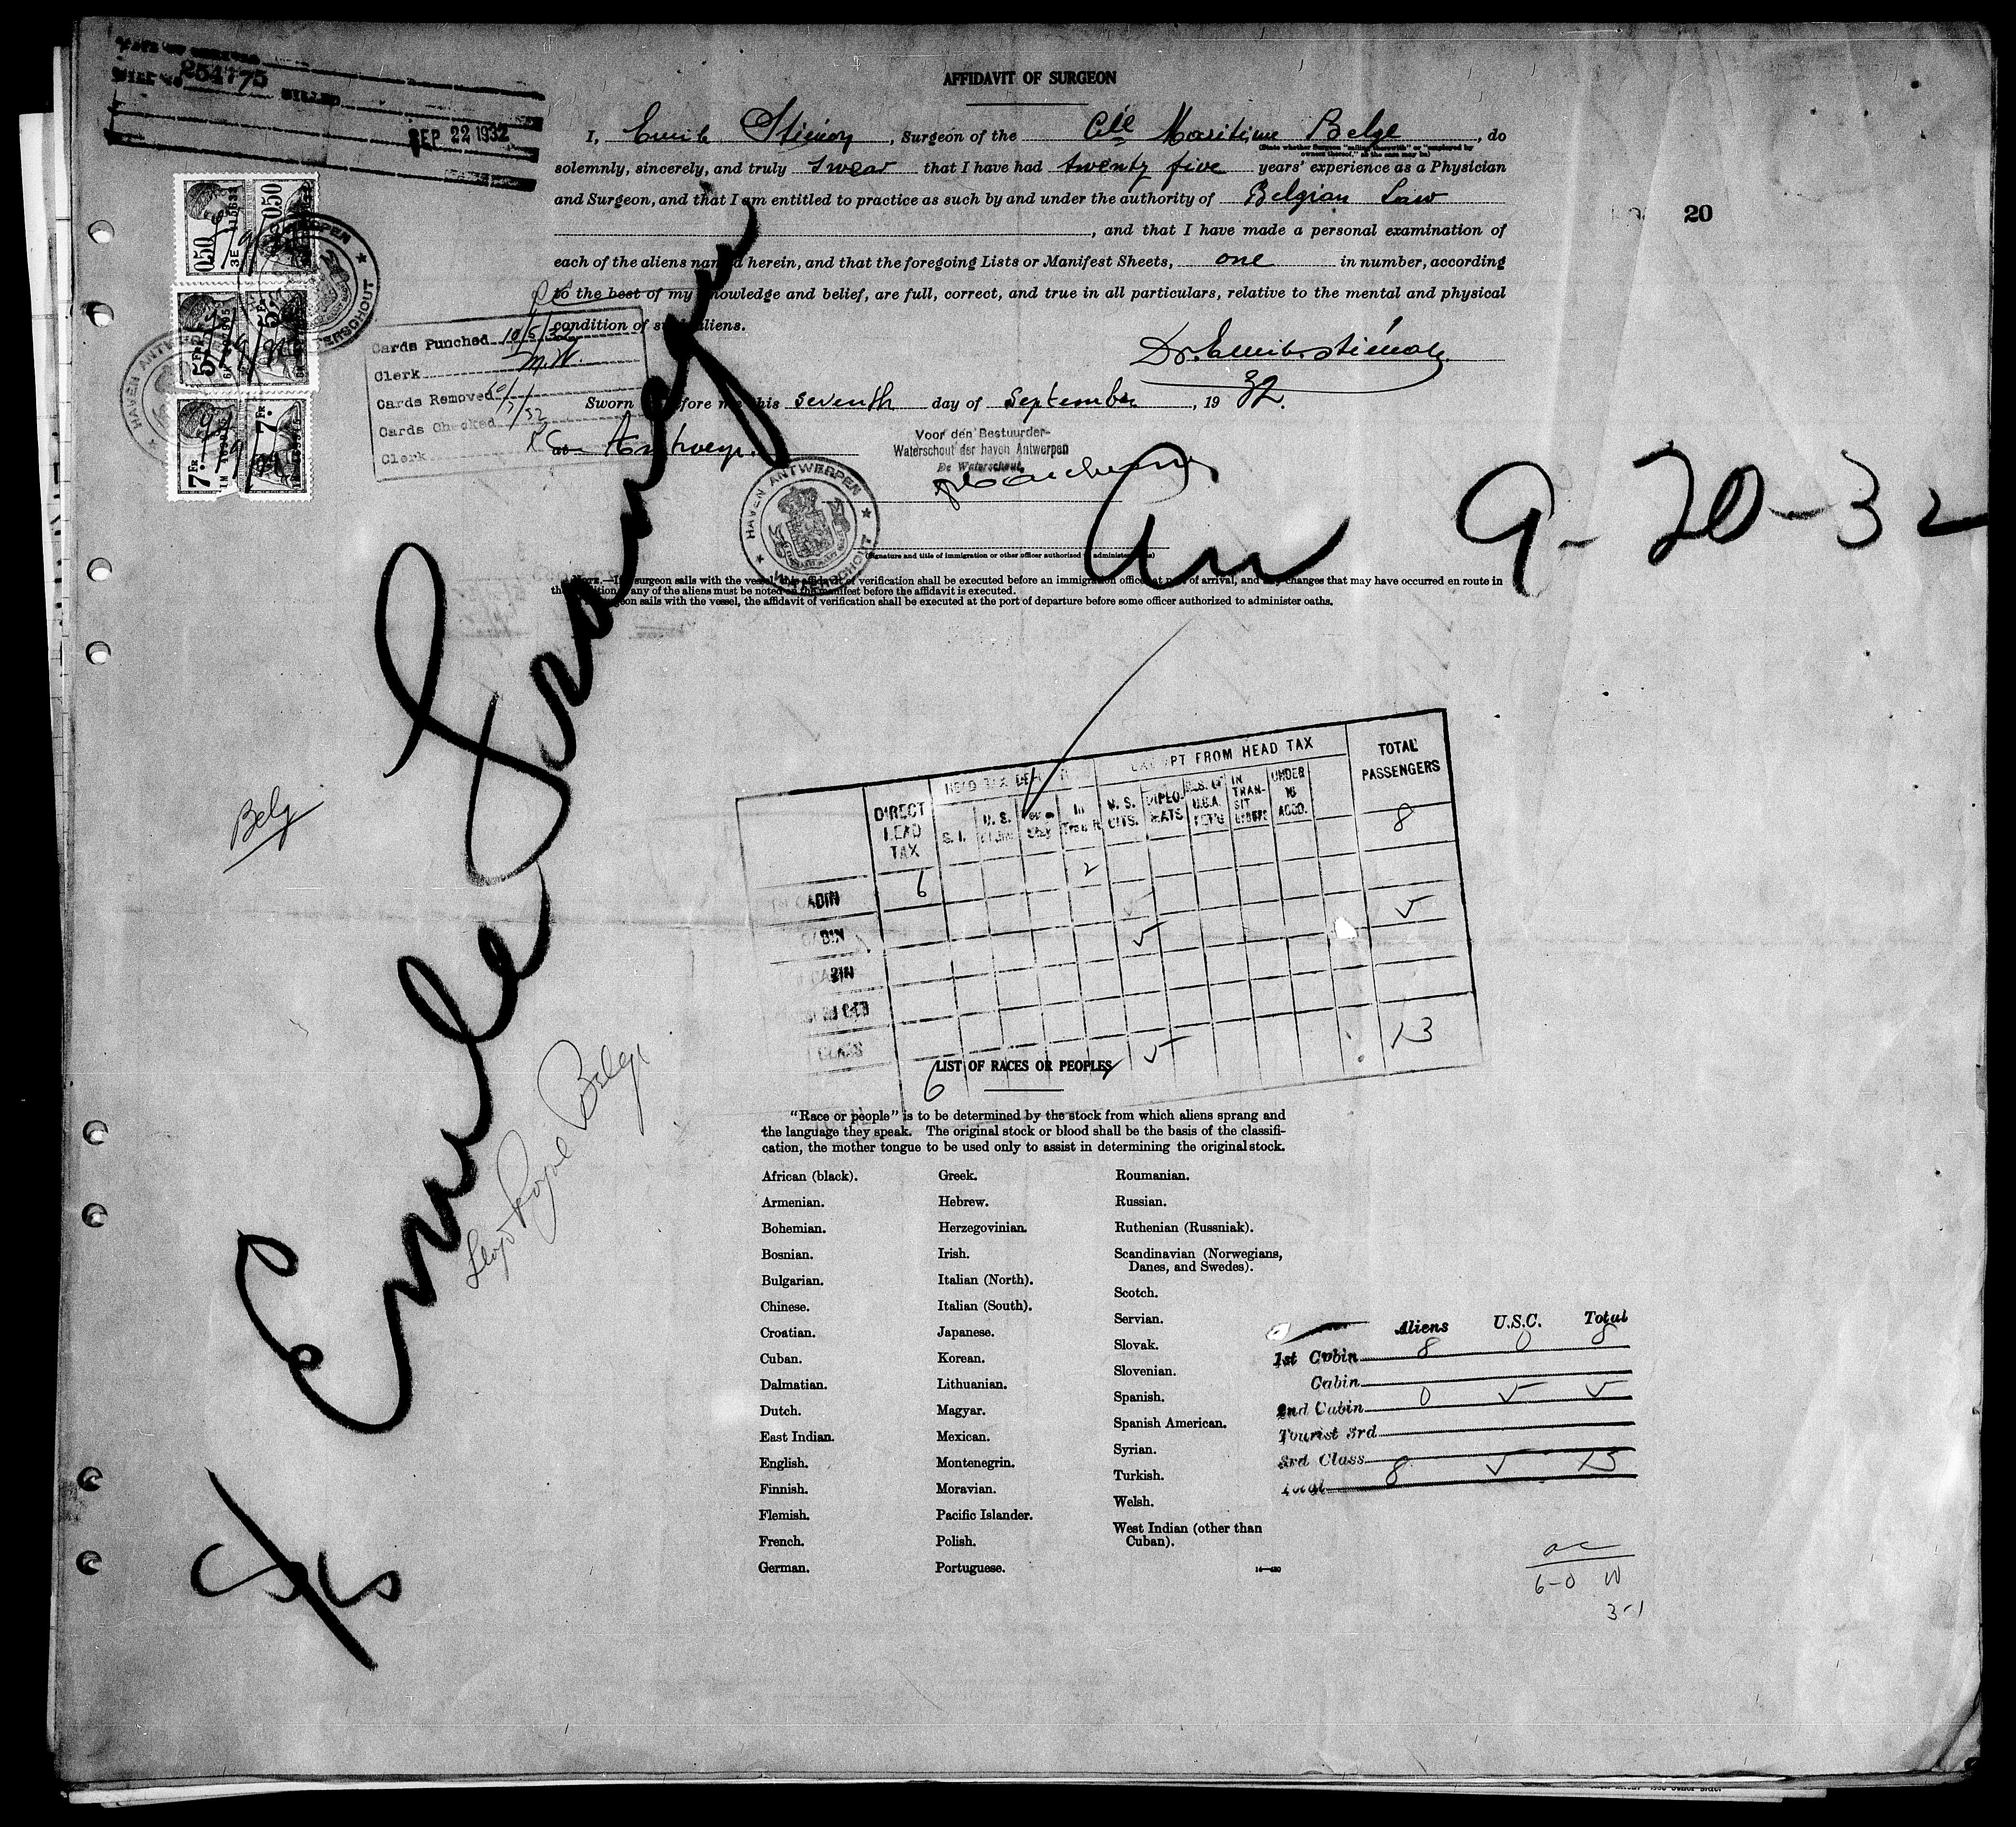 254775
SEP 22 1932
AFFIDAVIT OF SURGEON
20
I, Emile , Surgeon of the Cie Maritime Belge, do
(State whether Surgeon "sailing therewith" or "employed by
owners thereof," as the case may be)
solemnly, sincerely, and truly swear that I have had twenty five years' experience as a Physician
and Surgeon, and that I am entitled to practice as such by and under the authority of Belgian Law
, and that I have made a personal examination of
each of the aliens named herein, and that the foregoing Lists or Manifest Sheets, one in number, according
to the best of my knowledge and belief, are full, correct, and true in all particulars, relative to the mental and physical
condition of such aliens.
Cards Punched 10/5/32
Clerk
Cards Removed
Cards Checked
Clerk
Sworn before me this seventh day of September, 19 32.
Antwerp.
Voor den Bestuurder-
Waterschout der haven Antwerpen
De Waterschout,
HAVEN ANTWERPEN
WATERSCHOUT
(Signature and title of immigration or other officer authorized to administer oaths)
Arr 9-20-32
NOTE.—If surgeon sails with the vessel, this affidavit of verification shall be executed before an immigration officer at port of arrival, and any changes that may have occurred en route in
the condition of any of the aliens must be noted on the manifest before the affidavit is executed.
surgeon sails with the vessel, the affidavit of verification shall be executed at the port of departure before some officer authorized to administer oaths.
Emile Francqui
Belg
Lloyd Royal Belge
DIRECT HEAD TAX
EXEMPT FROM HEAD TAX
TOTAL PASSENGERS
S. I.
U. S. CITS.
DIPLOMATS
IN TRANSIT
UNDER 16 ACCD.
CABIN 6 2 8
CABIN
CABIN
CLASS
6 13
LIST OF RACES OR PEOPLES
"Race or people" is to be determined by the stock from which aliens sprang and
the language they speak. The original stock or blood shall be the basis of the classifi-
cation, the mother tongue to be used only to assist in determining the original stock.
African (black).
Armenian.
Bohemian.
Bosnian.
Bulgarian.
Chinese.
Croatian.
Cuban.
Dalmatian.
Dutch.
East Indian.
English.
Finnish.
Flemish.
French.
German.
Greek.
Hebrew.
Herzegovinian.
Irish.
Italian (North).
Italian (South).
Japanese.
Korean.
Lithuanian.
Magyar.
Mexican.
Montenegrin.
Moravian.
Pacific Islander.
Polish.
Portuguese.
Roumanian.
Russian.
Ruthenian (Russniak).
Scandinavian (Norwegians,
Danes, and Swedes).
Scotch.
Servian.
Slovak.
Slovenian.
Spanish.
Spanish American.
Syrian.
Turkish.
Welsh.
West Indian (other than
Cuban).
Aliens U.S.C. Total
1st Cabin 8 0 8
Cabin
2nd Cabin 0 5 5
Tourist 3rd
3rd Class
Total 8 5 13
6-0
3-1